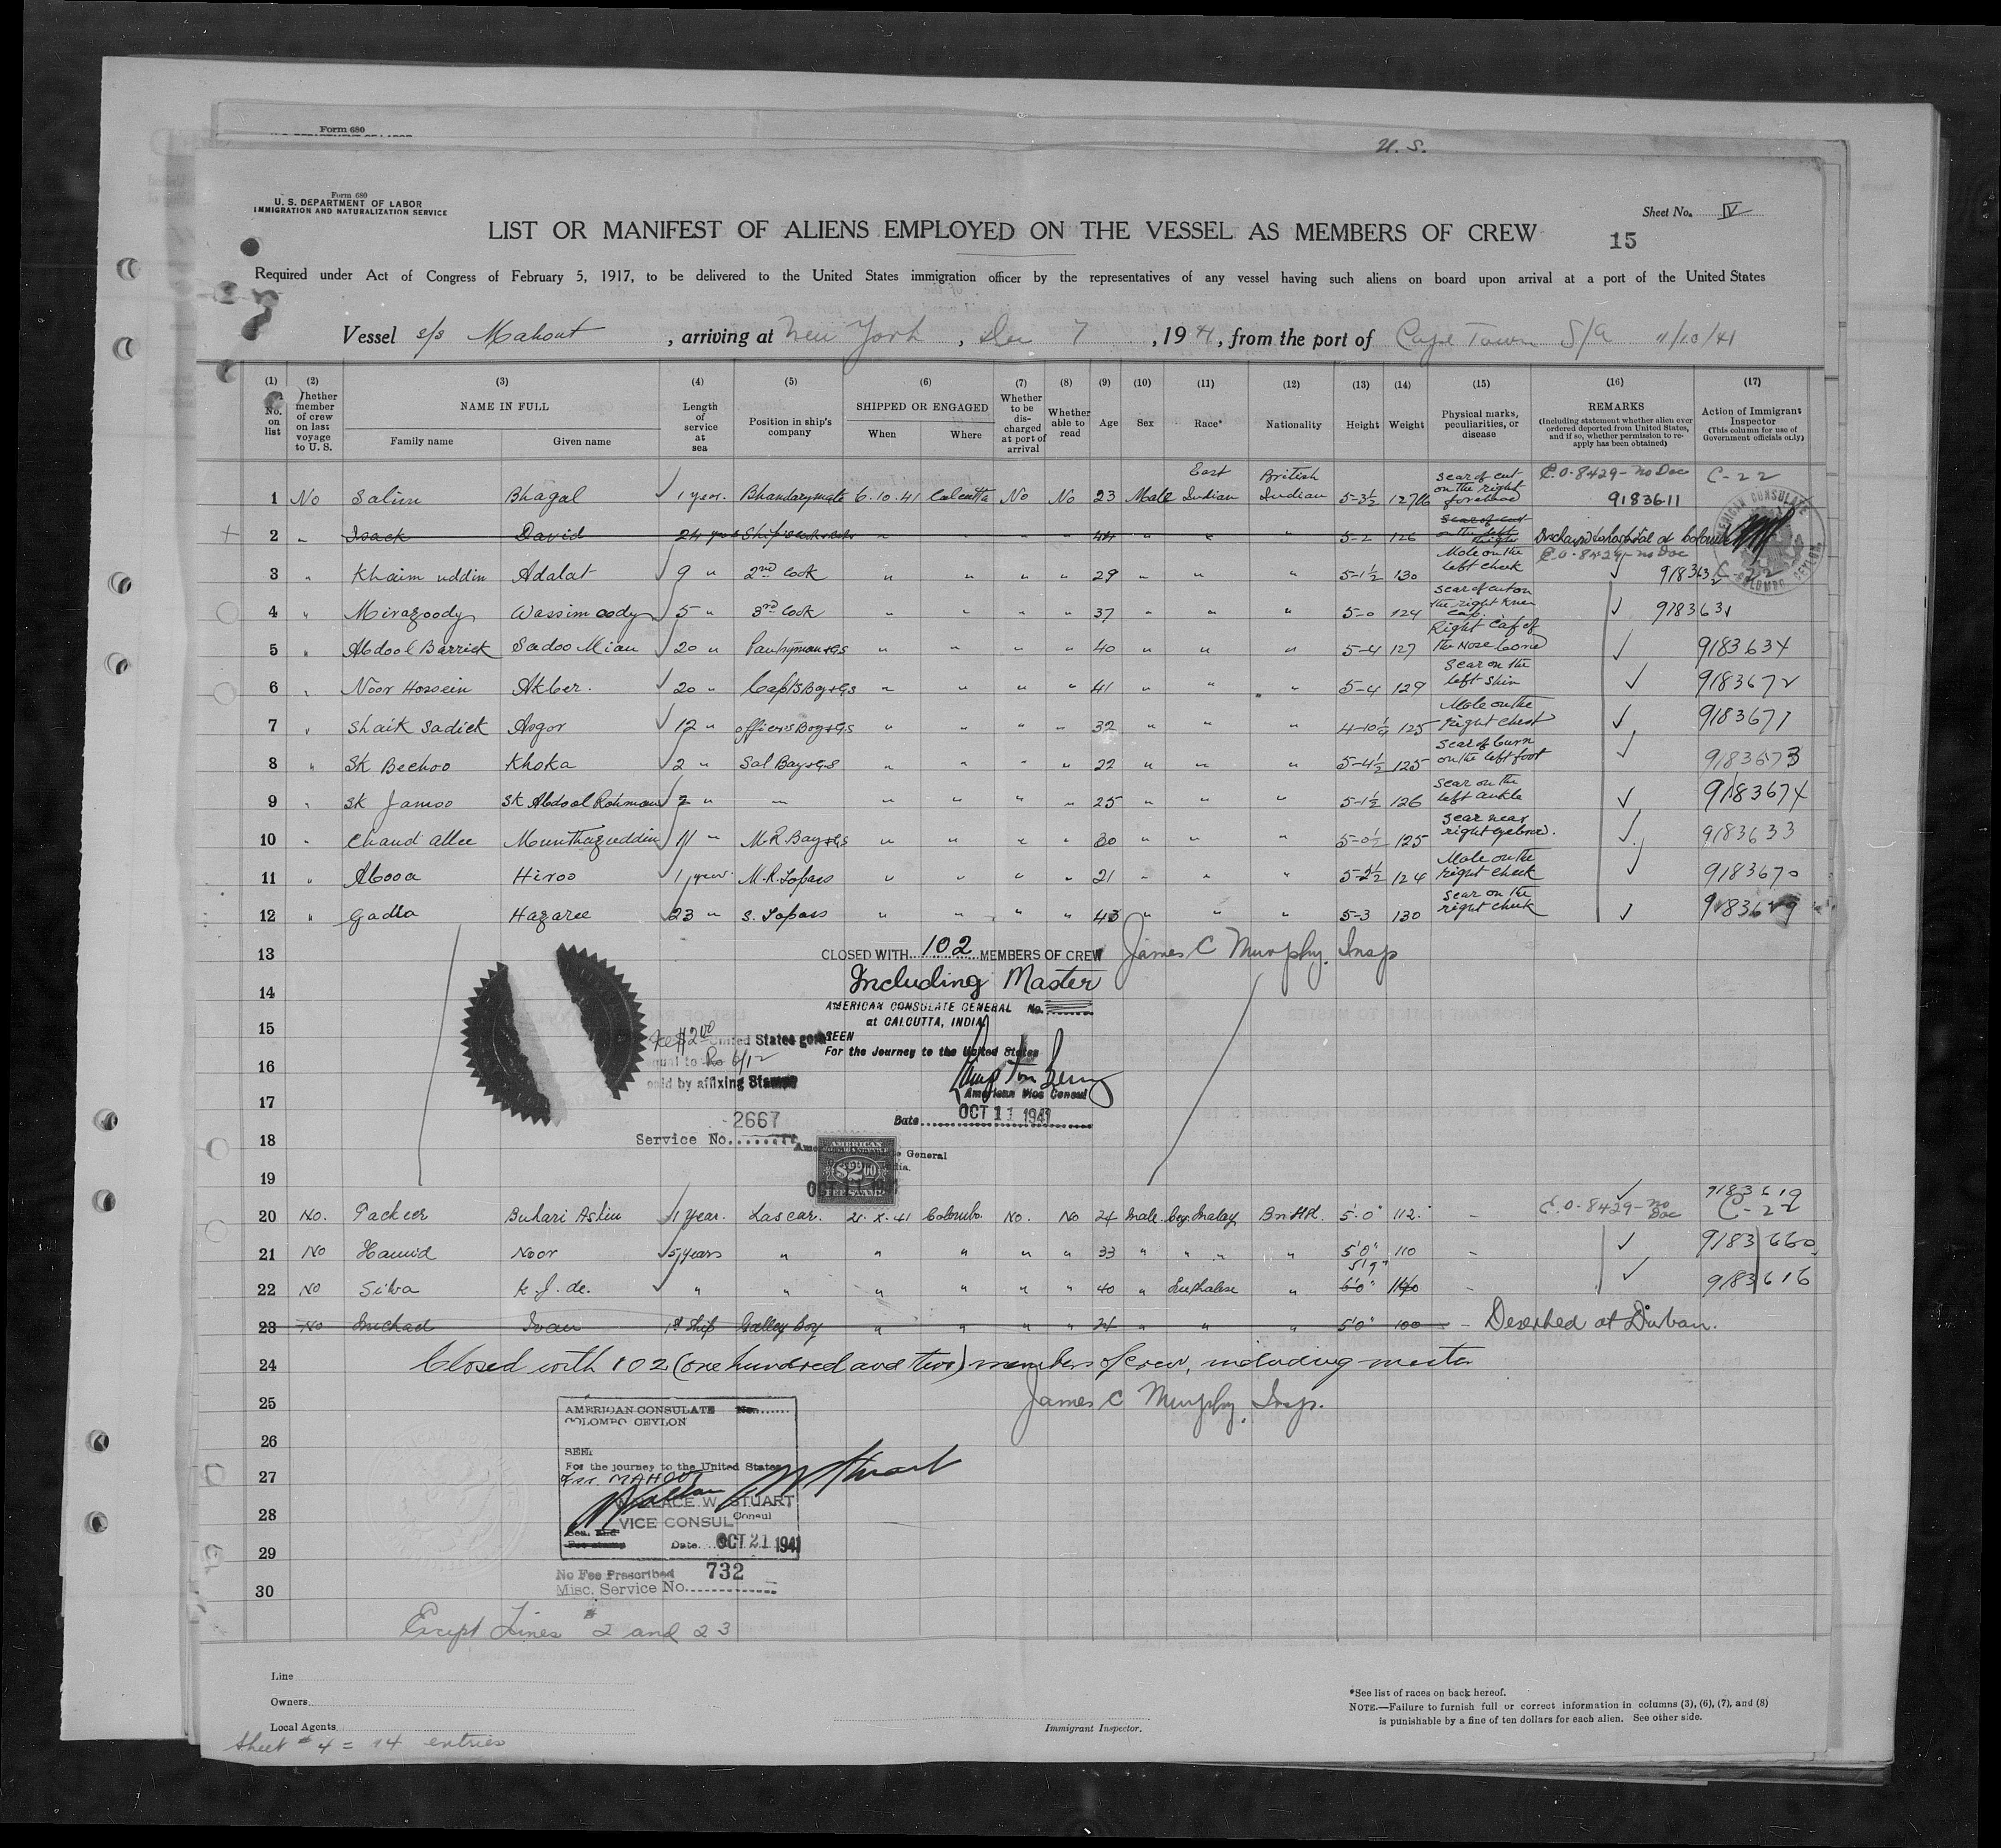 Form 680
U. S.
Form 680
U. S. DEPARTMENT OF LABOR
IMMIGRATION AND NATURALIZATION SERVICE
Sheet No. IV
LIST OR MANIFEST OF ALIENS EMPLOYED ON THE VESSEL AS MEMBERS OF CREW
15
Required under Act of Congress of February 5, 1917, to be delivered to the United States immigration officer by the representatives of any vessel having such aliens on board upon arrival at a port of the United States
Vessel s/s Mahout, arriving at New York, Dec 7, 1941, from the port of Cape Town S/A 11/10/41
(1) (2) (3) (4) (5) (6) (7) (8) (9) (10) (11) (12) (13) (14) (15) (16) (17)
No. on list
Whether member of crew on last voyage to U. S.
NAME IN FULL
Family name Given name
Length of service at sea
Position in ship's company
SHIPPED OR ENGAGED
When Where
Whether to be discharged at port of arrival
Whether able to read
Age Sex Race* Nationality Height Weight
Physical marks, peculiarities, or disease
REMARKS
(Including statement whether alien ever ordered deported from United States, and if so, whether permission to reapply has been obtained)
Action of Immigrant Inspector
(This column for use of Government officials only)
1 No Salim Bhagal 1 year. Bhandarymate 6.10.41 Calcutta No No 23 Male East Indian British Indian 5-3½ 127 lb Scar of cut on the right forehead E.O. 8429- no Doc 9183611 C-22
2 " Isack David 24 " " " " " 44 " " " 5-2 126 at Colombo
3 " Khaim uddin Adalat 9 " 2nd Cook " " " " 29 " " " 5-1½ 130 Mole on the left cheek E.O. 8429- no Doc C-22
4 " Mirazoody Wassimoody 5 " 3rd Cook " " " " 37 " " " 5-0 124 Scar of cut on the right knee cap. 9183631
5 " Abdool Barrick Sadoo Mian 20 " Pantryman+GS " " " " 40 " " " 5-4 127 the nose bone 9183634
6 " Noor Hossein Akber. 20 " Capt's Boy+GS " " " " 41 " " " 5-4 129 Scar on the left shin 9183672
7 " Shaik Sadick Asgor 12 " officers Boy+GS " " " " 32 " " " 4-10½ 125 Mole on the right chest 9183671
8 " Sk Bechoo Khoka 2 " Sal Boy+GS " " " " 22 " " " 5-4½ 125 Scar of burn on the left foot 9183673
9 " Sk Jamoo Sk Abdool Rohman 2 " " " " " " 25 " " " 5-1½ 126 Scar on the left ankle 9183674
10 " Chand allee Munthazuddin 11 " M.R. Boy+GS " " " " 30 " " " 5-0½ 125 Scar near right eyebrow. 9183633
11 " Abooa Hiroo 1 year. M.R. Topass " " " " 21 " " " 5-2½ 124 Mole on the right cheek 9183670
12 " Gadla Hazaree 23 " S. Topass " " " " 43 " " " 5-3 130 Scar on the right cheek
AMERICAN CONSULATE COLOMBO CEYLON
13 CLOSED WITH 102 MEMBERS OF CREW James C Murphy, Insp
14 Including Master
AMERICAN CONSULATE GENERAL No.
15 at CALCUTTA, INDIA
SEEN
Fee $2.00 United States gold
For the Journey to the United States
16 equal to Rs 6/12
paid by affixing Stamp
17 American Vice Consul
Date OCT 11 1941
18 Service No. 2667
AMERICAN $2.00 FEE STAMP
19
20 No. Packeer Buhari Aslim 1 year. Lascar. 21.X.41 Colombo. No. No 24 male. Cey. Malay British. 5'.0" 112. - E.O. 8429- no Doc 9183619 C-22
21 No Hamid Noor 5 years " " " " " 33 " " " " 5'0" 110 - 9183660
22 No Silva K. J. de. " " " " " " 40 " Sinhalese " 5'9" - 9183616
23 No Michael Ivan 1st ship Galley boy " " " " 24 " " " 5'0" 100 - Deserted at Durban.
24 Closed with 102 (one hundred and two) members of crew, including master
25 James C Murphy, Insp.
AMERICAN CONSULATE No.
COLOMBO CEYLON
26 SEEN
For the journey to the United States
27 per MAHOUT
Wallace W Stuart
WALLACE W. STUART
28 VICE CONSUL Consul
Fee stamp Date. OCT 21 1941
29
No Fee Prescribed
30 Misc. Service No. 732
Except Lines # 2 and 23
Line
Owners
Local Agents
Immigrant Inspector.
*See list of races on back hereof.
NOTE.—Failure to furnish full or correct information in columns (3), (6), (7), and (8)
is punishable by a fine of ten dollars for each alien. See other side.
Sheet # 4 = 14 entries